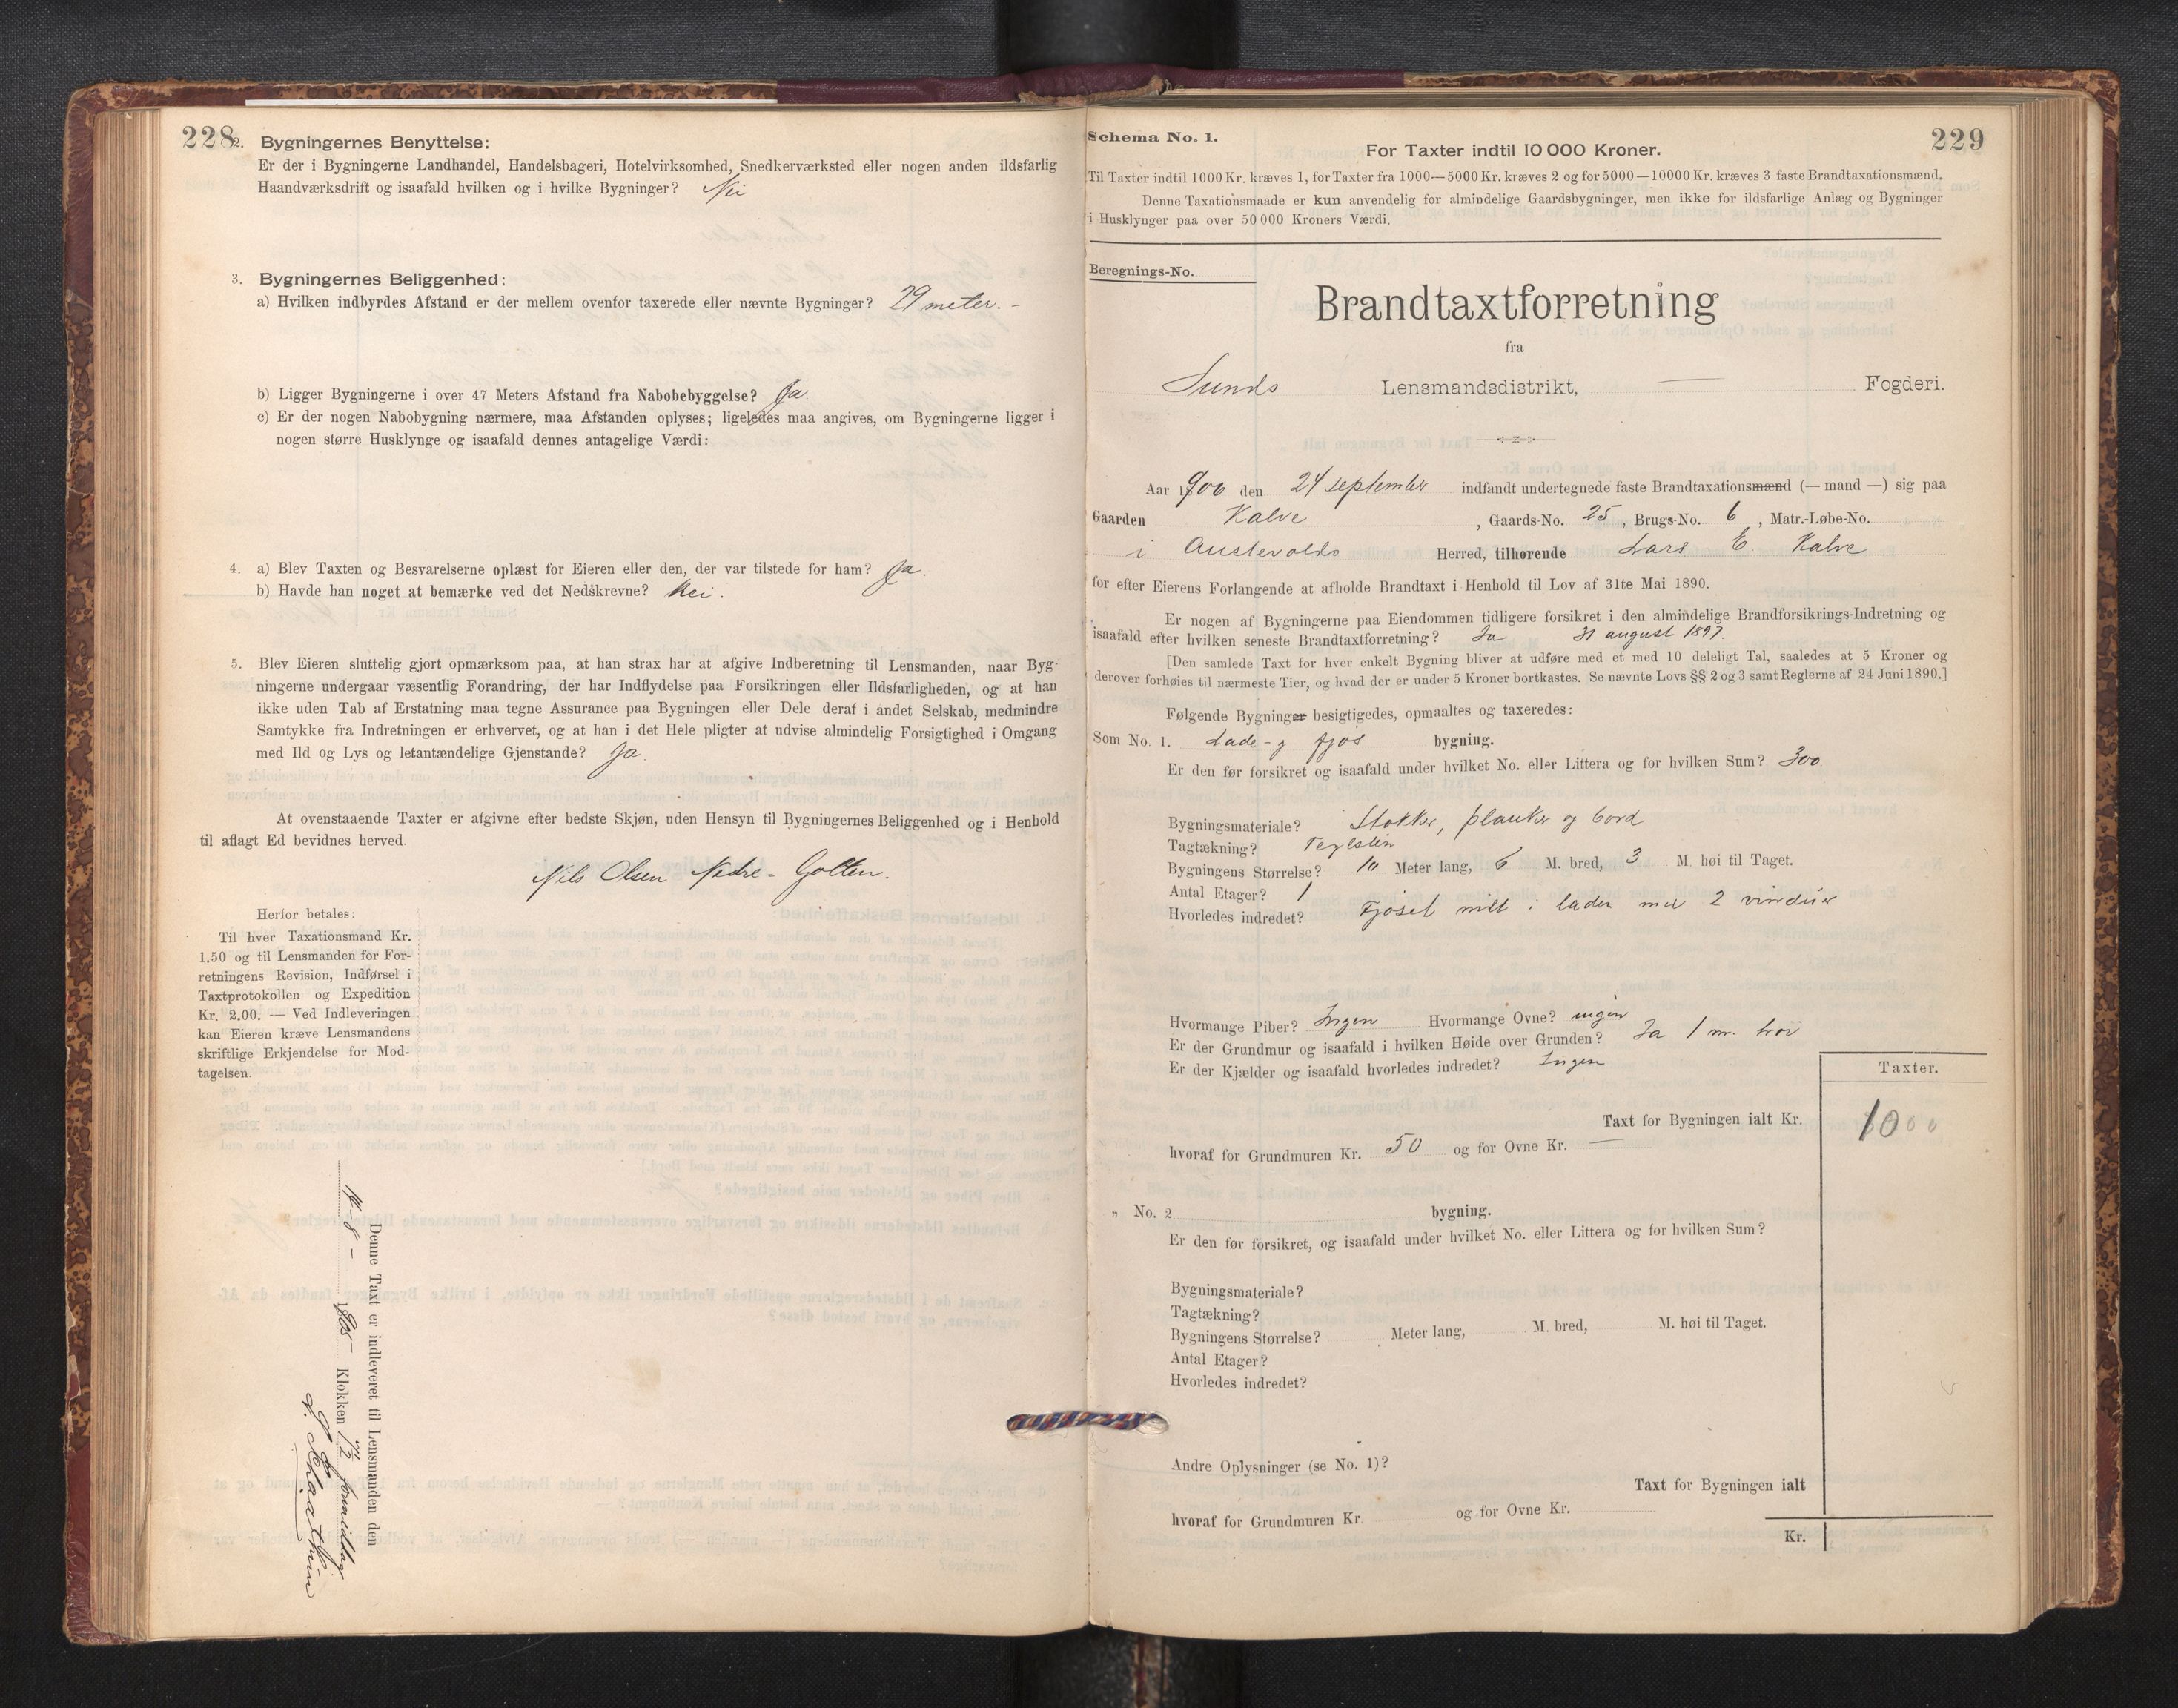 228
2. Bygningernes Benyttelse:
Er der i Bygningerne Landhandel, Handelsbageri, Hotelvirksomhed, Snedkerværksted eller nogen anden ildsfarlig
Haandværksdrift og isaafald hvilken og i hvilke Bygninger? Nei
3. Bygningernes Beliggenhed:
a) Hvilken indbyrdes Afstand er der mellem ovenfor taxerede eller nævnte Bygninger? 29 meter. -
b) Ligger Bygningerne i over 47 Meters Afstand fra Nabobebyggelse? Ja.
c) Er der nogen Nabobygning nærmere, maa Afstanden oplyses; ligeledes maa angives, om Bygningerne ligger i
nogen større Husklynge og isaafald dennes antagelige Værdi:
4. a) Blev Taxten og Besvarelserne oplæst for Eieren eller den, der var tilstede for ham? Ja.
b) Havde han noget at bemærke ved det Nedskrevne? Nei.
5. Blev Eieren sluttelig gjort opmærksom paa, at han strax har at afgive Indberetning til Lensmanden, naar Byg-
ningerne undergaar væsentlig Forandring, der har Indflydelse paa Forsikringen eller Ildsfarligheden, og at han
ikke uden Tab af Erstatning maa tegne Assurance paa Bygningen eller Dele deraf i andet Selskab, medmindre
Samtykke fra Indretningen er erhvervet, og at han i det Hele pligter at udvise almindelig Forsigtighed i Omgang
med Ild og Lys og letantændelige Gjenstande? Ja.
At ovenstaaende Taxter er afgivne efter bedste Skjøn, uden Hensyn til Bygningernes Beliggenhed og i Henhold
til aflagt Ed bevidnes herved.
Nils Olsen Nedre-Golten.
Herfor betales:
Til hver Taxationsmand Kr.
1.50 og til Lensmanden for For-
retningens Revision, Indførsel i
Taxtprotokollen og Expedition
Kr. 2.00. — Ved Indleveringen
kan Eieren kræve Lensmandens
skriftlige Erkjendelse for Mod-
tagelsen.
Denne Taxt er indleveret til Lensmanden den
14-8 - 1905 Klokken 12 formiddag
229
Schema No. 1.
For Taxter indtil 10 000 Kroner.
Til Taxter indtil 1000 Kr. kræves 1, for Taxter fra 1000—5000 Kr. kræves 2 og for 5000—10000 Kr. kræves 3 faste Brandtaxationsmænd.
Denne Taxationsmaade er kun anvendelig for almindelige Gaardsbygninger, men ikke for ildsfarlige Anlæg og Bygninger
i Husklynger paa over 50 000 Kroners Værdi.
Beregnings-No.
Brandtaxtforretning
fra
Sunds Lensmandsdistrikt, — Fogderi.
Aar 1900 den 24 september indfandt undertegnede faste Brandtaxationsmænd (— mand —) sig paa
Gaarden Kalve, Gaards-No. 25, Brugs-No. 6, Matr.-Løbe-No.
i Austevolds Herred, tilhørende Lars E Kalve
for efter Eierens Forlangende at afholde Brandtaxt i Henhold til Lov af 31te Mai 1890.
Er nogen af Bygningerne paa Eiendommen tidligere forsikret i den almindelige Brandforsikrings-Indretning og
isaafald efter hvilken seneste Brandtaxtforretning? Ja 31 august 1897.
[Den samlede Taxt for hver enkelt Bygning bliver at udføre med et med 10 deleligt Tal, saaledes at 5 Kroner og
derover forhøies til nærmeste Tier, og hvad der er under 5 Kroner bortkastes. Se nævnte Lovs §§ 2 og 3 samt Reglerne af 24 Juni 1890.]
Følgende Bygninger besigtigedes, opmaaltes og taxeredes:
Som No. 1. Lade- g fjøs bygning.
Er den før forsikret og isaafald under hvilket No. eller Littera og for hvilken Sum? 300.
Bygningsmateriale? Stokker, planker og bord
Tagtækning? Teglsten
Bygningens Størrelse? 10 Meter lang, 6 M. bred, 3 M. høi til Taget.
Antal Etager? 1
Hvorledes indredet? Fjøset midt i laden med 2 vinduer
Hvormange Piber? Ingen Hvormange Ovne? ingen
Er der Grundmur og isaafald i hvilken Høide over Grunden? Ja 1 m. høi
Er der Kjælder og isaafald hvorledes indredet? Ingen
Taxter.
Taxt for Bygningen ialt Kr. 1000
hvoraf for Grundmuren Kr. 50 og for Ovne Kr. —
" No. 2 bygning.
Er den før forsikret, og isaafald under hvilket No. eller Littera og for hvilken Sum?
Bygningsmateriale?
Tagtækning?
Bygningens Størrelse? Meter lang, M. bred, M. høi til Taget.
Antal Etager?
Hvorledes indredet?
Andre Oplysninger (se No. 1)?
Taxt for Bygningen ialt
hvoraf for Grundmuren Kr. og for Ovne Kr.
Kr.